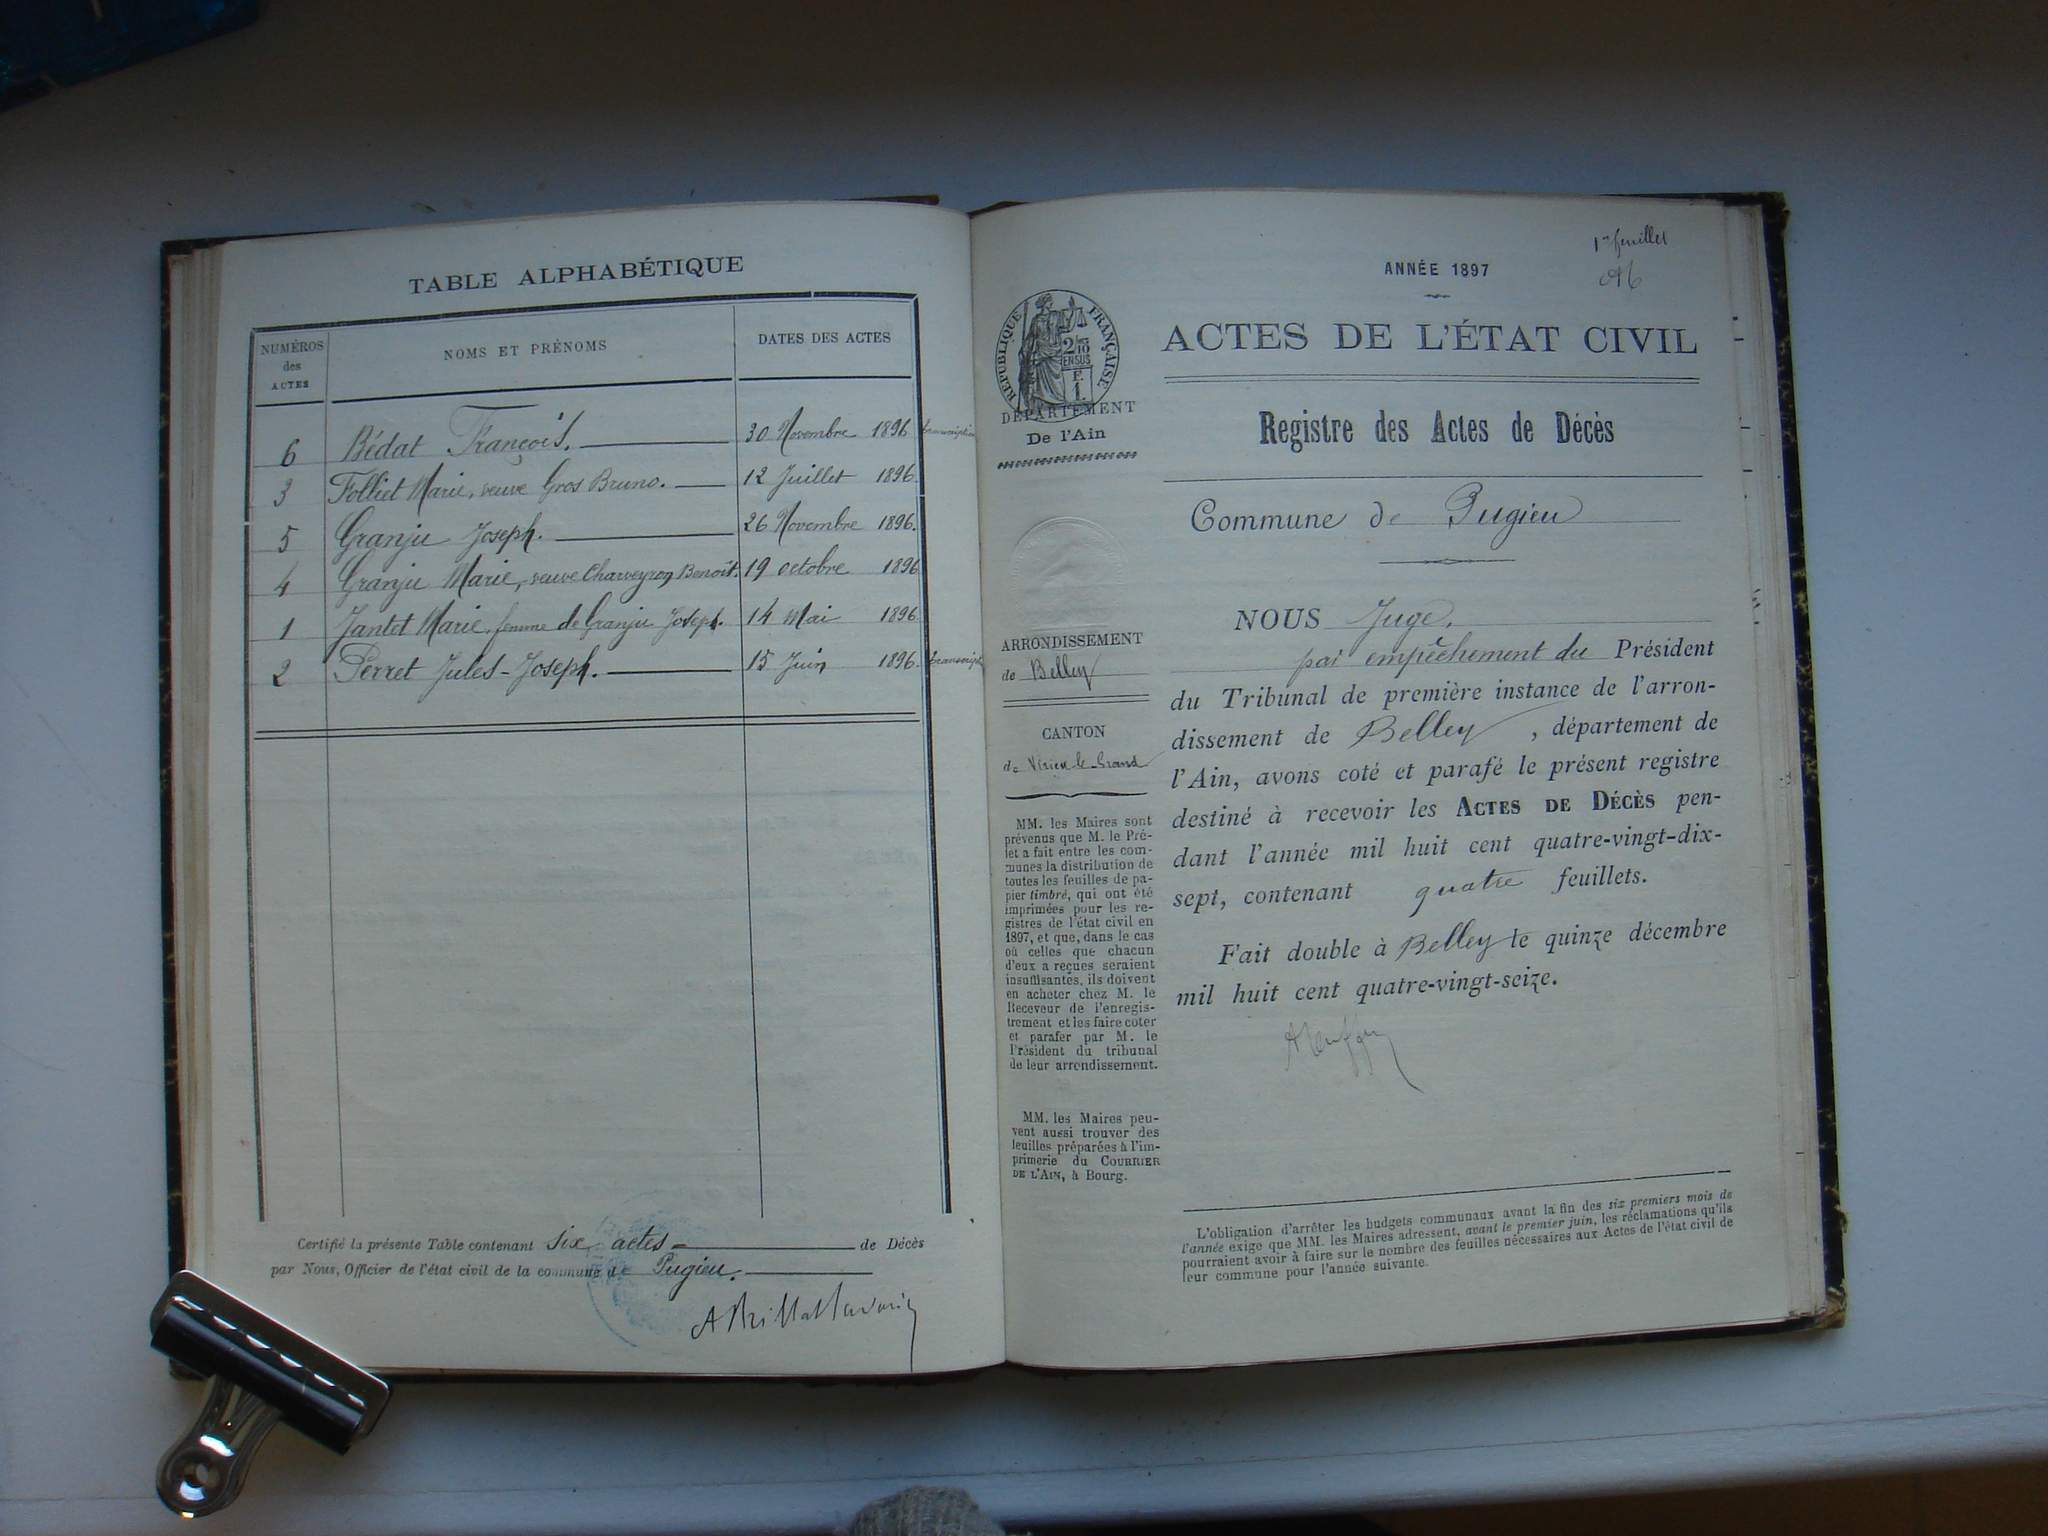 TABLE ALPHABÉTIQUE
NUMÉROS des ACTES
NOMS ET PRÉNOMS
DATES DES ACTES
6 Bédat François. 30 Novembre 1896 transcription
3 Folliet Marie, veuve Gros Bruno. 12 Juillet 1896
5 Granju Joseph. 26 Novembre 1896.
4 Granju Marie, veuve Charveyron Benoît. 19 octobre 1896
1 Jantet Marie, femme de Granju Joseph. 14 Mai 1896
2 Perret Jules-Joseph. 15 Juin 1896.
Certifié la présente Table contenant six actes de Décès
par Nous, Officier de l'état civil de la commune de Pugieu.
1er feuillet
ANNÉE 1897
ACTES DE L'ÉTAT CIVIL
RÉPUBLIQUE FRANÇAISE
2/10 EN SUS
F. 1.
DÉPARTEMENT
De l'Ain
Registre des Actes de Décès
Commune de Pugieu
ARRONDISSEMENT
de Belley
CANTON
de Virieu-le-Grand
MM. les Maires sont
prévenus que M. le Pré-
fet a fait entre les com-
munes la distribution de
toutes les feuilles de pa-
pier timbré, qui ont été
imprimées pour les re-
gistres de l'état civil en
1897, et que, dans le cas
où celles que chacun
d'eux a reçues seraient
insuffisantes, ils doivent
en acheter chez M. le
Receveur de l'enregis-
trement et les faire coter
et parafer par M. le
Président du tribunal
de leur arrondissement.
MM. les Maires peu-
vent aussi trouver des
feuilles préparées à l'im-
primerie du COURRIER
DE L'AIN, à Bourg.
NOUS Juge,
par empêchement du Président
du Tribunal de première instance de l'arron-
dissement de Belley, département de
l'Ain, avons coté et parafé le présent registre
destiné à recevoir les ACTES DE DÉCÈS pen-
dant l'année mil huit cent quatre-vingt-dix-
sept, contenant quatre feuillets.
Fait double à Belley le quinze décembre
mil huit cent quatre-vingt-seize.
L'obligation d'arrêter les budgets communaux avant la fin des six premiers mois de
l'année exige que MM. les Maires adressent, avant le premier juin, les réclamations qu'ils
pourraient avoir à faire sur le nombre des feuilles nécessaires aux Actes de l'état civil de
leur commune pour l'année suivante.